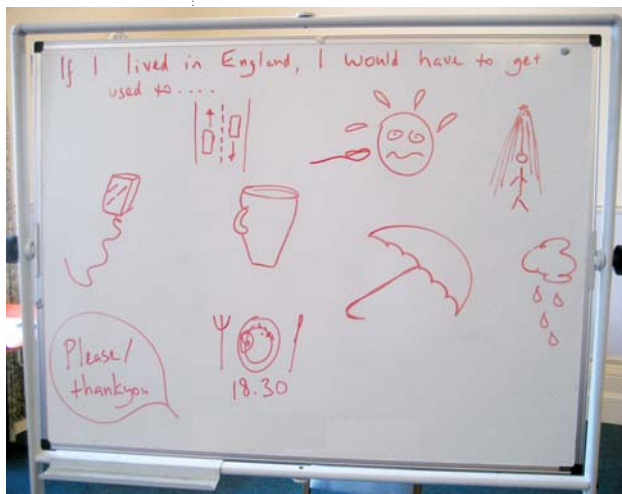 If I lived in England, I would have to get
used to....
Please/
thankyou
18.30